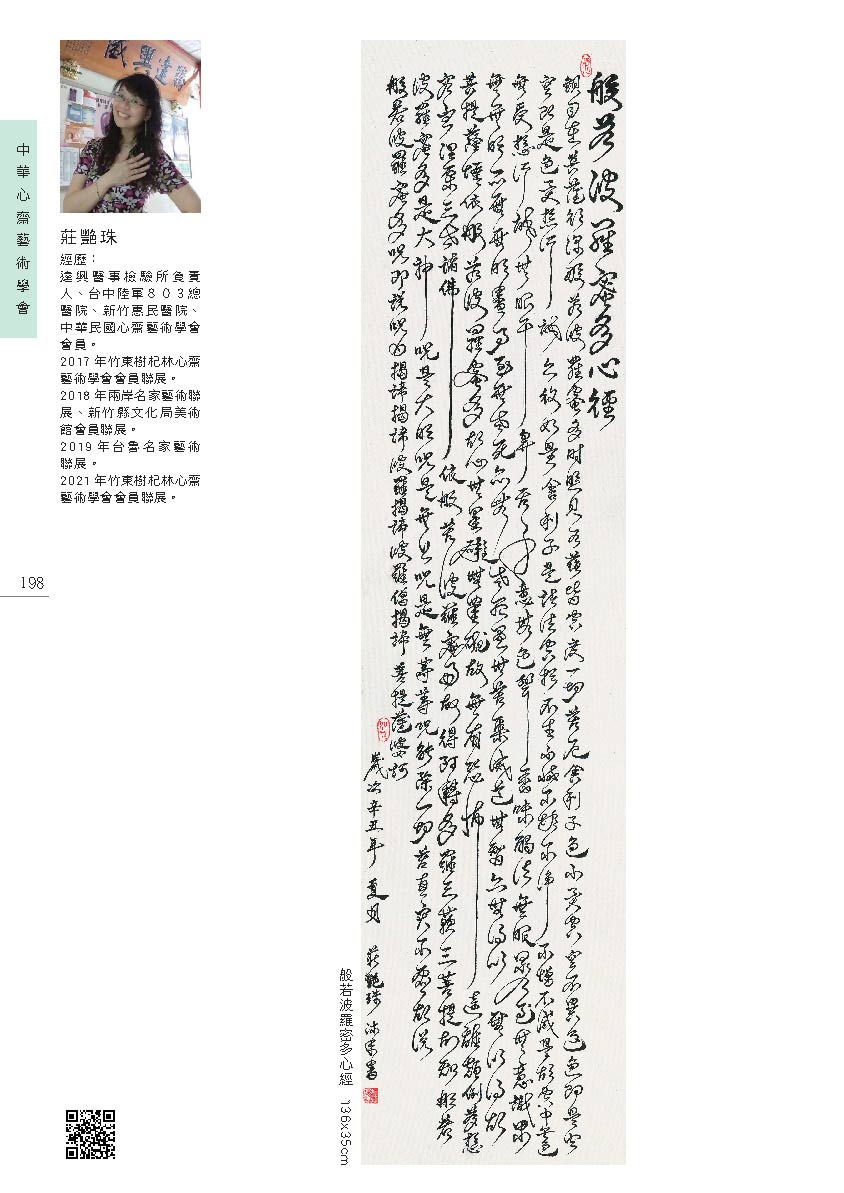 中華心齋藝術學會
莊艷珠
經歷：
達興醫事檢驗所負責
人、台中陸軍８０３總
醫院、新竹惠民醫院、
中華民國心齋藝術學會
會員。
2017 年竹東樹杞林心齋
藝術學會會員聯展。
2018 年兩岸名家藝術聯
展、新竹縣文化局美術
館會員聯展。
2019 年台魯名家藝術
聯展。
2021 年竹東樹杞林心齋
藝術學會會員聯展。
198
般若波羅蜜多心經
觀自在菩薩行深般若波羅蜜多時照見五蘊皆空度一切苦厄舍利子色不異空空不異色色即是空
空即是色受想行識亦復如是舍利子是諸法空相不生不滅不垢不淨不增不減是故空中無色
無受想行識無眼耳鼻舌身意無色聲香味觸法無眼界乃至無意識界
無無明亦無無明盡乃至無老死亦無老死盡無苦集滅道無智亦無得以無所得故
菩提薩埵依般若波羅蜜多故心無罣礙無罣礙故無有恐怖遠離顛倒夢想
究竟涅槃三世諸佛依般若波羅蜜多故得阿耨多羅三藐三菩提故知般若
波羅蜜多是大神咒是大明咒是無上咒是無等等咒能除一切苦真實不虛故說
般若波羅蜜多咒即說咒曰揭諦揭諦波羅揭諦波羅僧揭諦菩提薩婆訶
歲次辛丑年夏月莊艷珠沐手書
般若波羅密多心經 136x35cm